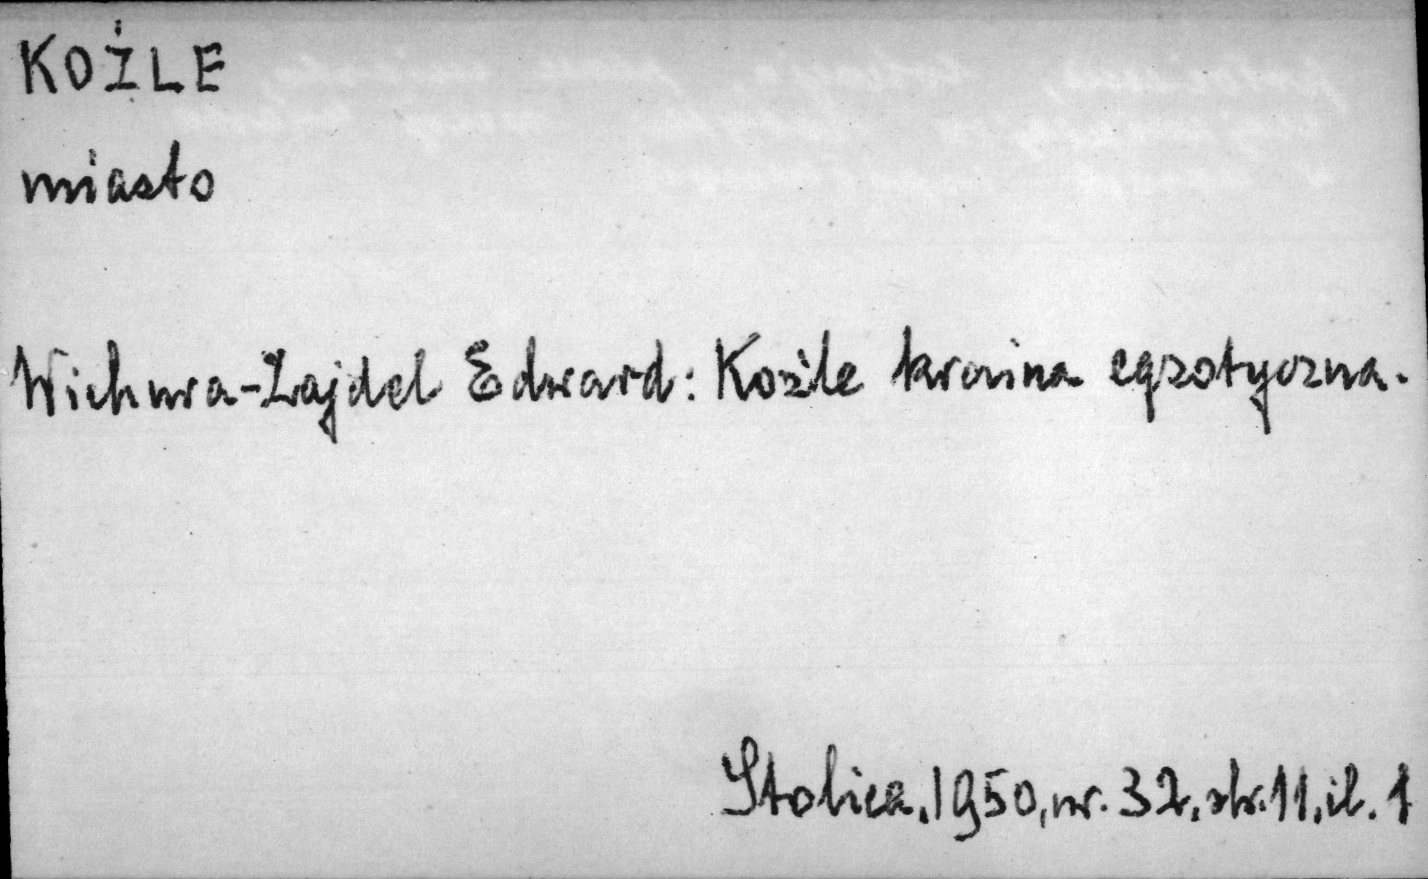 KOŹLE
miasto
Wichura-Zajdel Edward: Koźle kraina egzotyczna.
Stolica, 1950, nr. 32, str. 11, il. 1